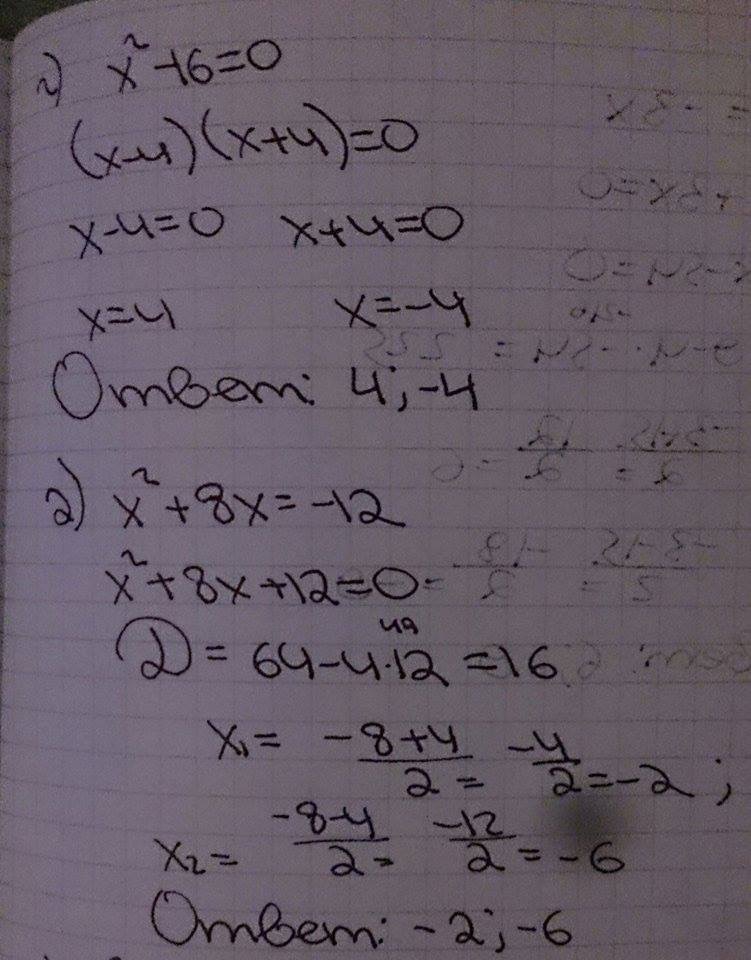 г) x²-16=0
(x-4)(x+4)=0
x-4=0 x+4=0
x=4 x=-4
Ответ: 4; -4
д) x²+8x=-12
x²+8x+12=0
48
D = 64-4·12 =16
x₁= -8+4/2 = -4/2 =-2;
x₂= -8-4/2 = -12/2 = -6
Ответ: -2; -6